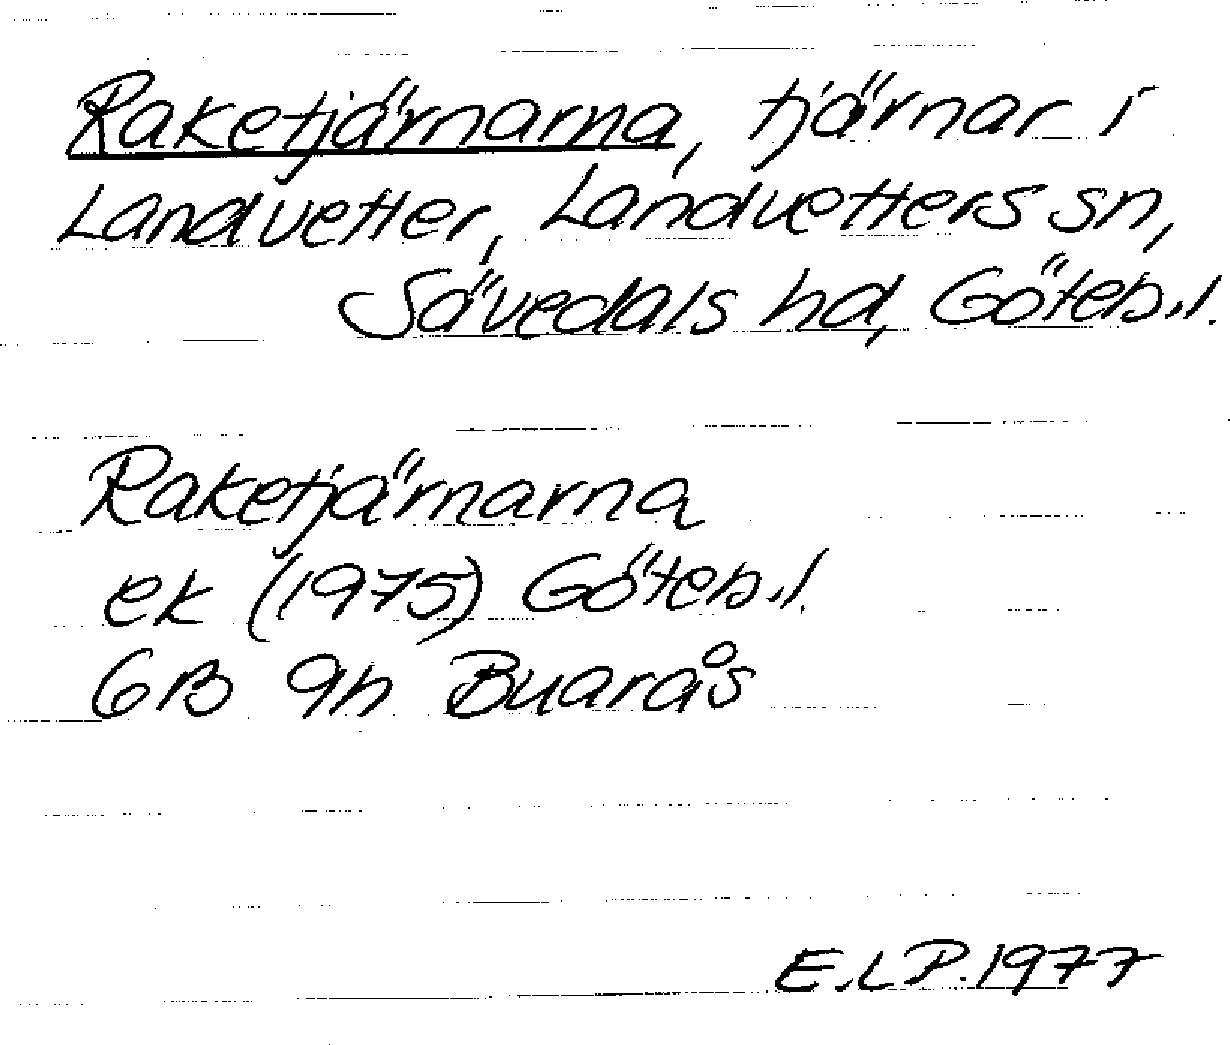 Raketjärnarna, tjärnar i
Landvetter, Landvetters sn,
Sävedals hd, Göteb.l.
Raketjärnarna
ek (1975) Göteb.l.
6B 9h Buarås
E.L P. 1977